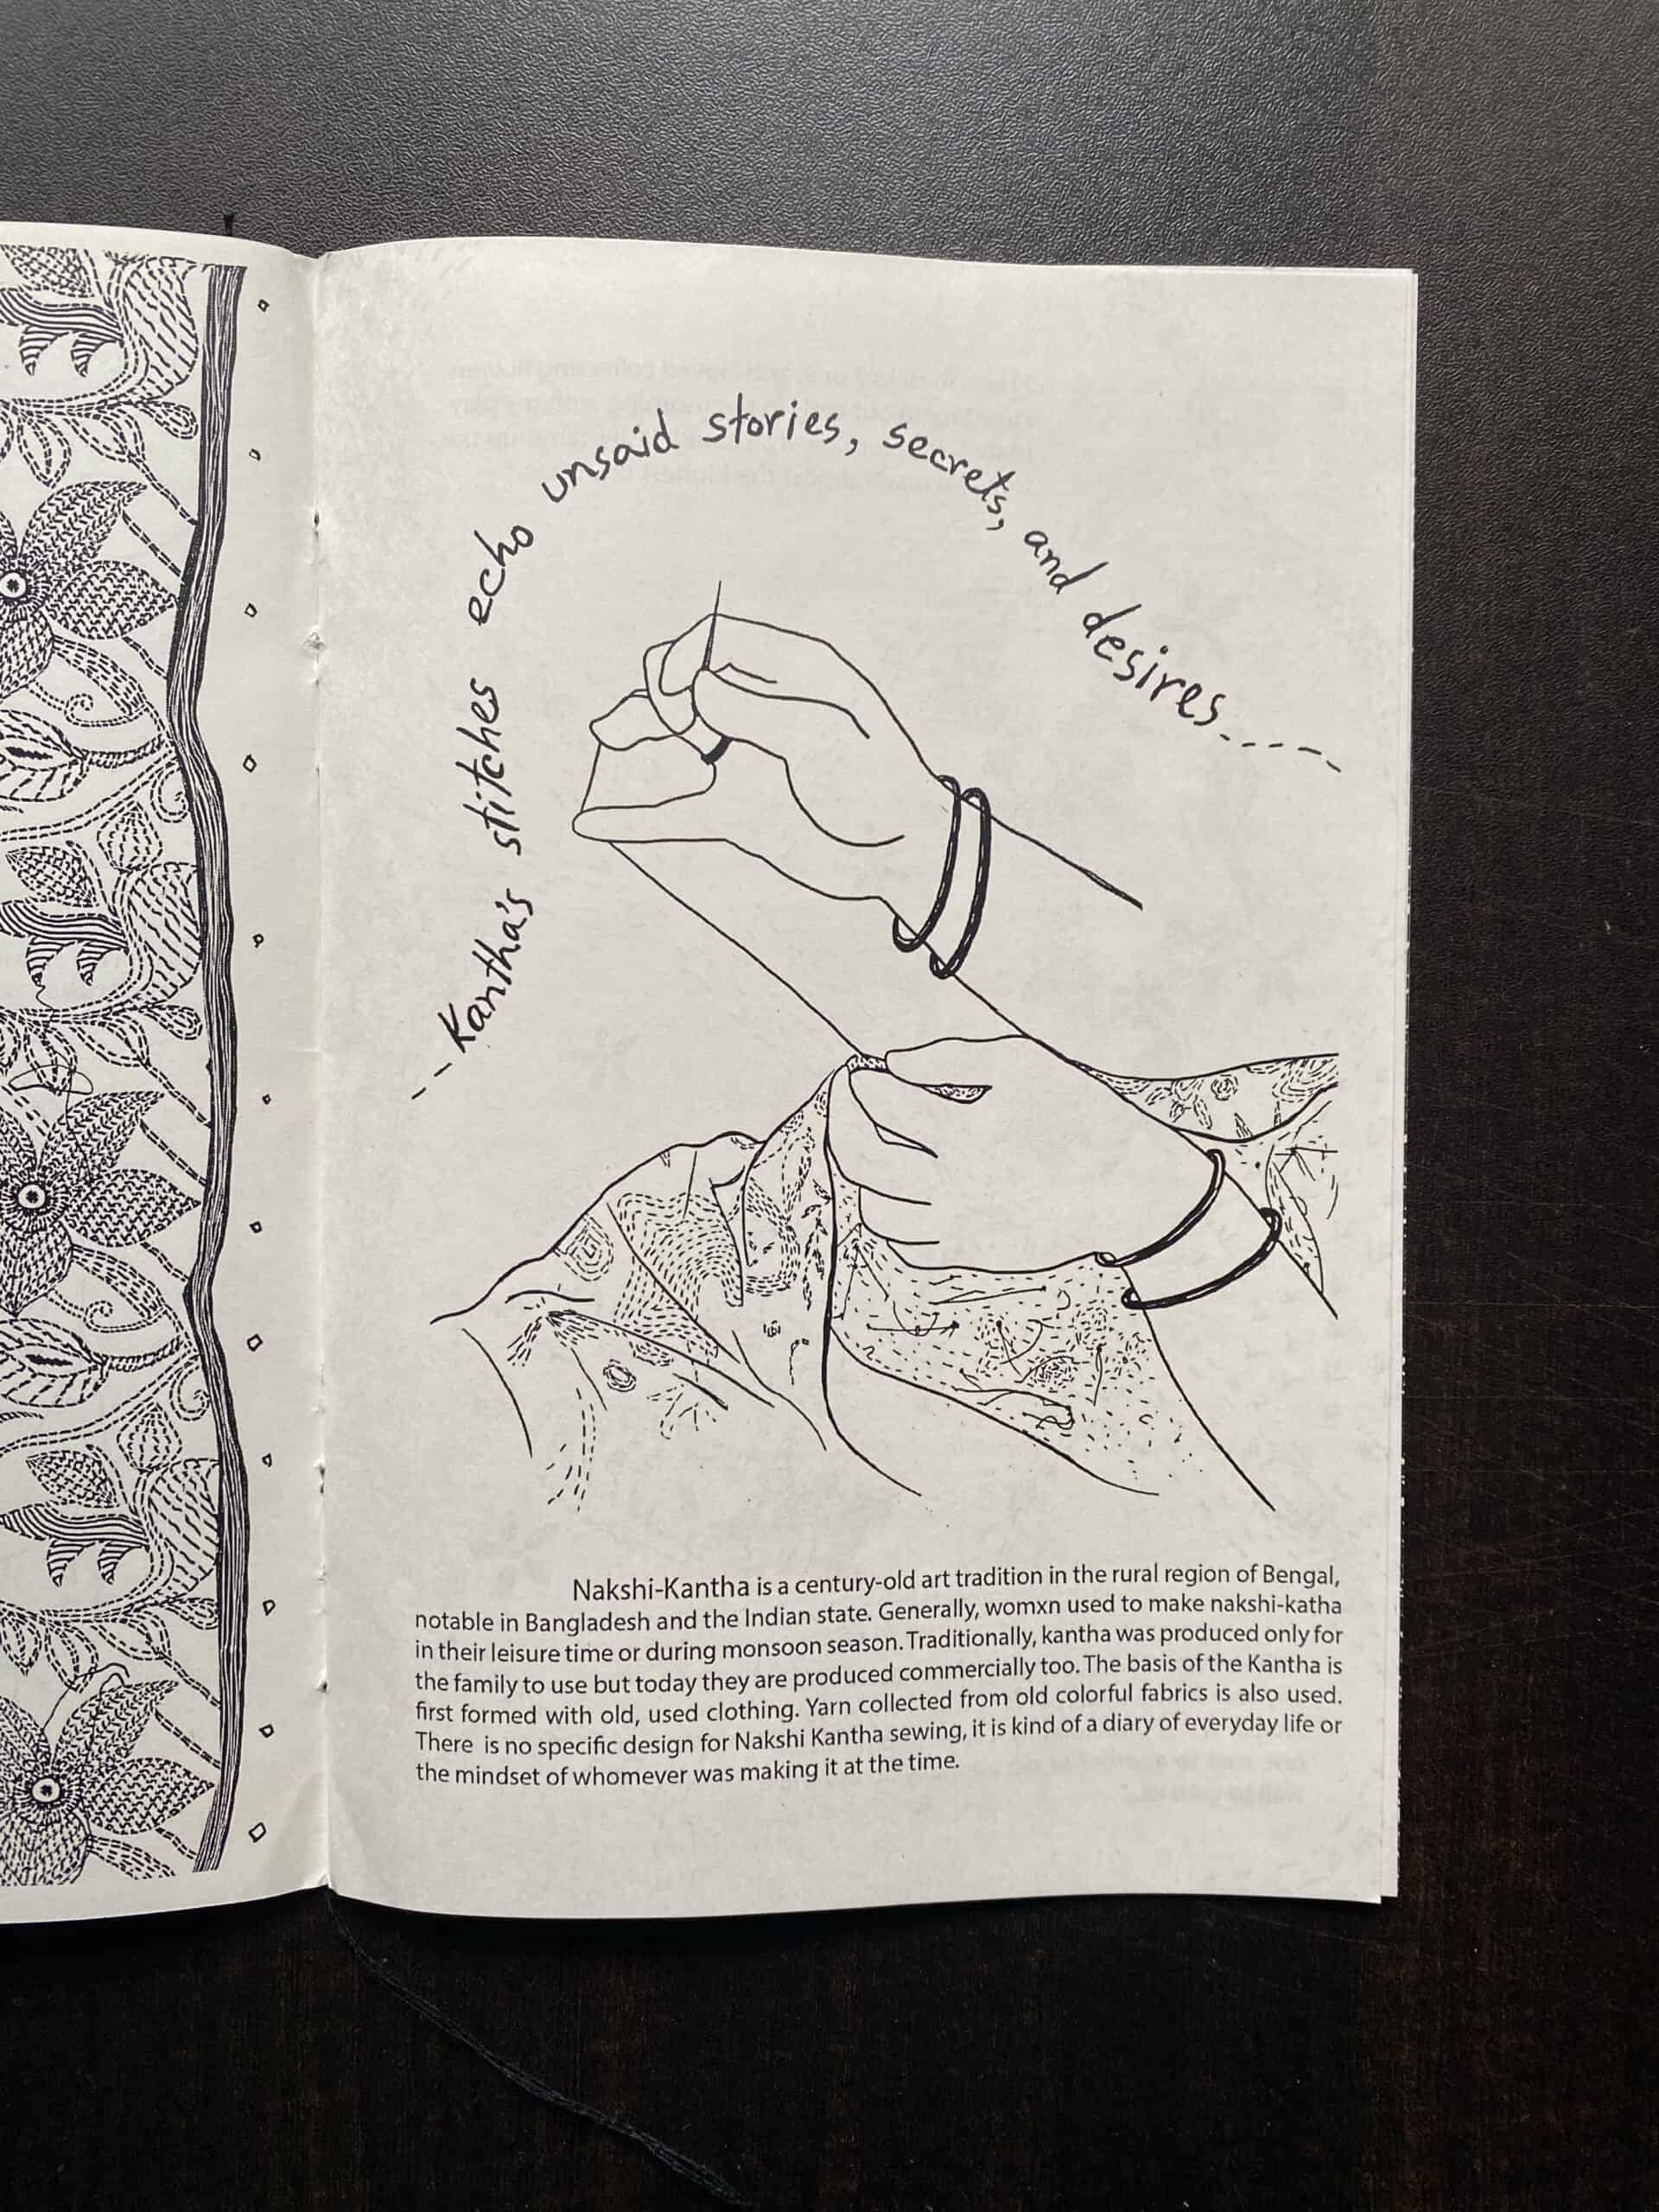 -- Kantha's stitches echo unsaid stories, secrets, and desires....---
Nakshi-Kantha is a century-old art tradition in the rural region of Bengal,
notable in Bangladesh and the Indian state. Generally, womxn used to make nakshi-katha
in their leisure time or during monsoon season. Traditionally, kantha was produced only for
the family to use but today they are produced commercially too. The basis of the Kantha is
first formed with old, used clothing. Yarn collected from old colorful fabrics is also used.
There is no specific design for Nakshi Kantha sewing, it is kind of a diary of everyday life or
the mindset of whomever was making it at the time.